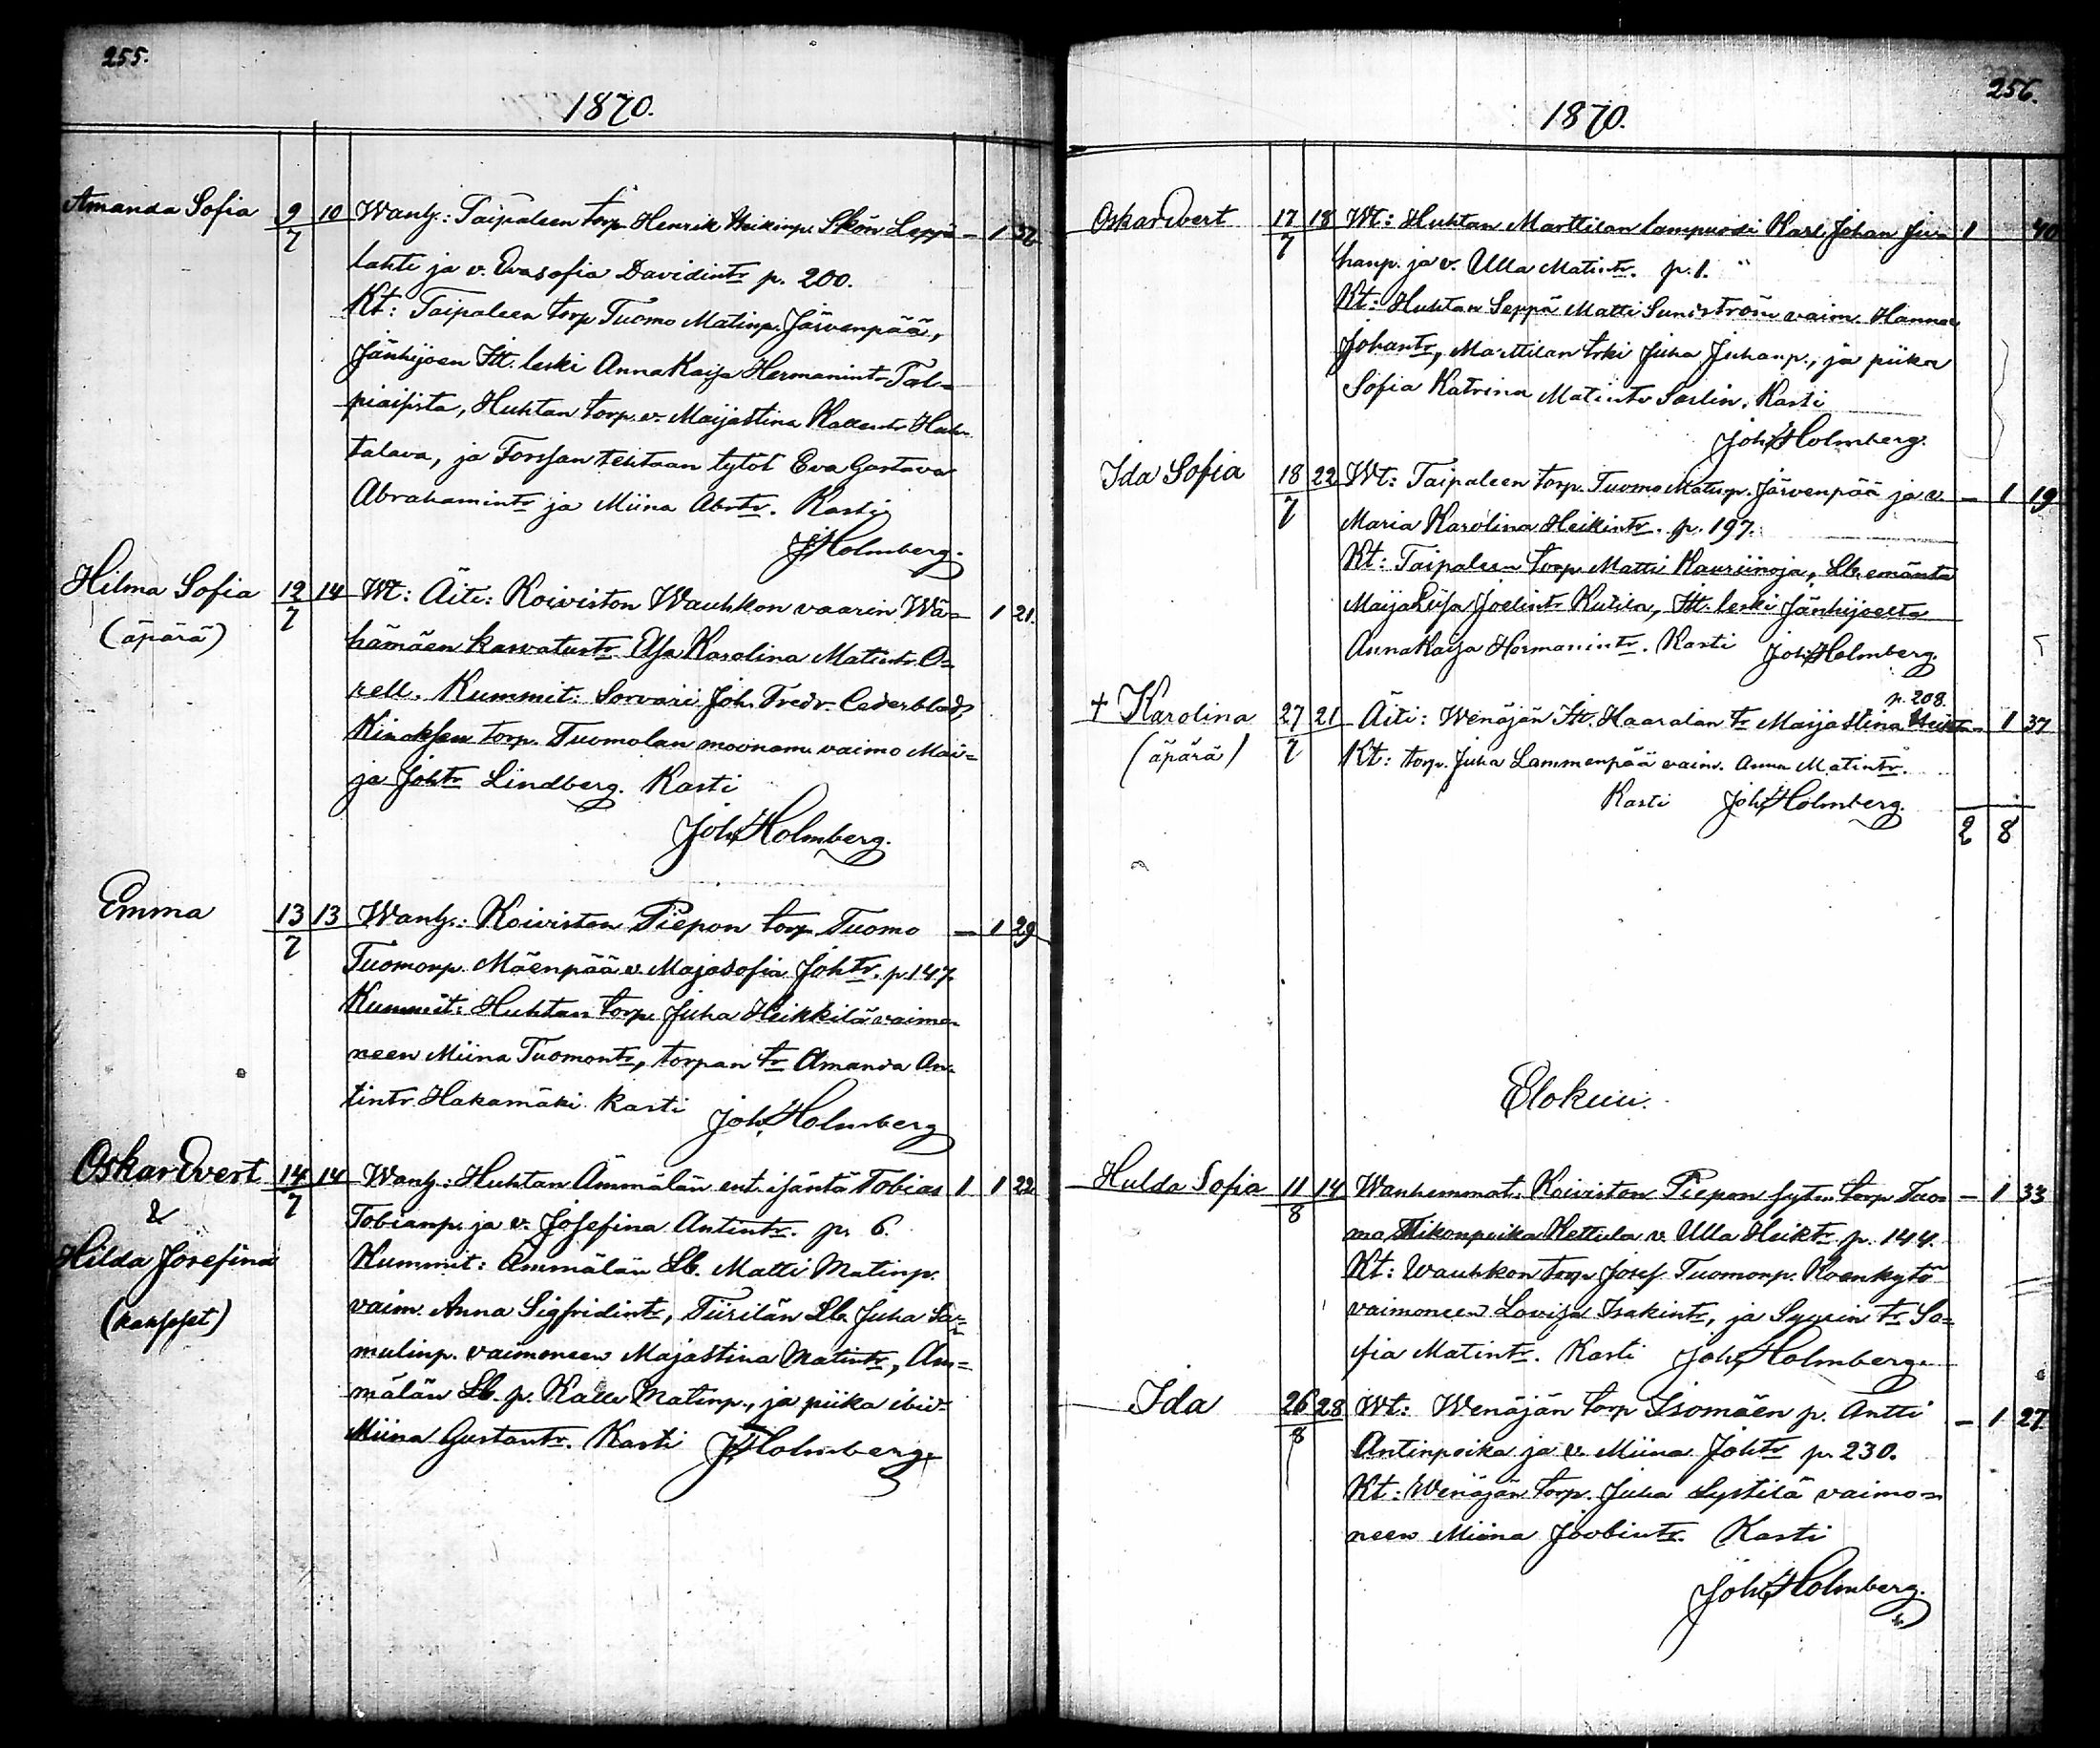 255.
1870.
Amanda Sofia 9/7 10 Wanh.: Taipaleen torp. Henrik Heikinp. Skön Leppä- – 1 32
lahti ja v. Evasofia Davidintr p. 200.
Kt: Taipaleen torp Tuomo Matinp. Järvenpää,
Jänhijoen Itt. leski AnnaKaisa Hermanintr Tal-
piaisista, Huhtan torp. v. Maijastina Kallentr Hah-
talava, ja Forssan tehtaan tytöt Eva Gustava
Abrahamintr ja Miina Abrtr. Kasti
JHolmberg.
Hilma Sofia 12/7 14 Wt: Äiti: Koiviston Wauhkon vaarin Wä- 1 21.
(äpärä) hämäen kasvatustr Elsa Karolina Matintr O-
rell. Kummit: Sorvari Joh. Fredr. Cederblad,
torp. Tuomolan moonam. vaimo Mai-
ja Johtr Lindberg. Kasti
Joh. Holmberg.
Emma 13/7 13 Wanh.: Koiviston Piepon torp Tuomo – 1 29
Tuomonp. Mäenpää v. Majasofia Johtr. p. 147.
Kummit: Huhtan torp. Juha Heikkilä vaimo-
neen Miina Tuomontr, torpan tr Amanda An-
tintr Hakamäki. Kasti Joh. Holmberg
Oskar Evert 14/7 14 Wanh.: Huhtan Ämmälän ent. isäntä Tobias 1 1 22
& Tobianp. ja v. Josefina Antintr. p. 6.
Hilda Josefina Kummit: Ämmälän Lb. Matti Matinp.
(kaksoset) vaim. Anna Sigfridintr, Tiirilän Lb. Juha Sa-
mulinp. vaimoneen Majastina Matintr, Äm-
mälän Lb. p. Kalle Matinp., ja piika ibid.
Miina Gustantr. Kasti JHolmberg.
256.
1870.
Oskar Evert 17/7 18 Wt: Huhtan Marttilan lampuodi Karl Johan Ju- 1 40
hanp. ja v. Ulla Matintr. p. 1.
Kt: Huhtan Seppä Matti Sundström vaim. Hanna
Johantr, Marttilan trki Juha Juhanp., ja piika
Sofia Katrina Matintr Saslin. Kasti
Joh. Holmberg.
Ida Sofia 18/7 22 Wt: Taipaleen torp. Tuomo Matinp. Järvenpää ja v. – 1 19
Maria Karolina Heikintr. p. 197.
Kt: Taipaleen torp. Matti Kauriinoja, Lb. emäntä
MaijaLiisa Joelintr Kutila, Itt. leski Jänhijoelta
AnnaKaisa Hermanintr. Kasti Joh. Holmberg.
p. 208.
+ Karolina 27/7 21 Äiti: Wenäjän Itt. Haaralan tr Maijastina Heiktr – 1 37
(äpärä) Kt: torp. Juha Lammenpää vaim. Anna Matintr.
Kasti Joh. Holmberg.
2 8
Elokuu.
Hulda Sofia 11/8 14 Wanhemmat: Koiviston Piepon torp Tuo- – 1 33
mo Mikonpoika Kettula v. Ulla Heiktr p. 144.
Kt: Wauhkon torp Josef Tuomonp. Koenkytö
vaimoneen Lovisa Isakintr, ja Syurin tr So-
fia Matintr. Kasti Joh. Holmberg.
Ida 26/8 28 Wt: Wenäjän torp Isomäen p. Antti – 1 27
Antinpoika ja v. Miina Johtr p. 230.
Kt: Wenäjän torp. Juha Systilä vaimo-
neen Miina Joobintr. Kasti
Joh. Holmberg.